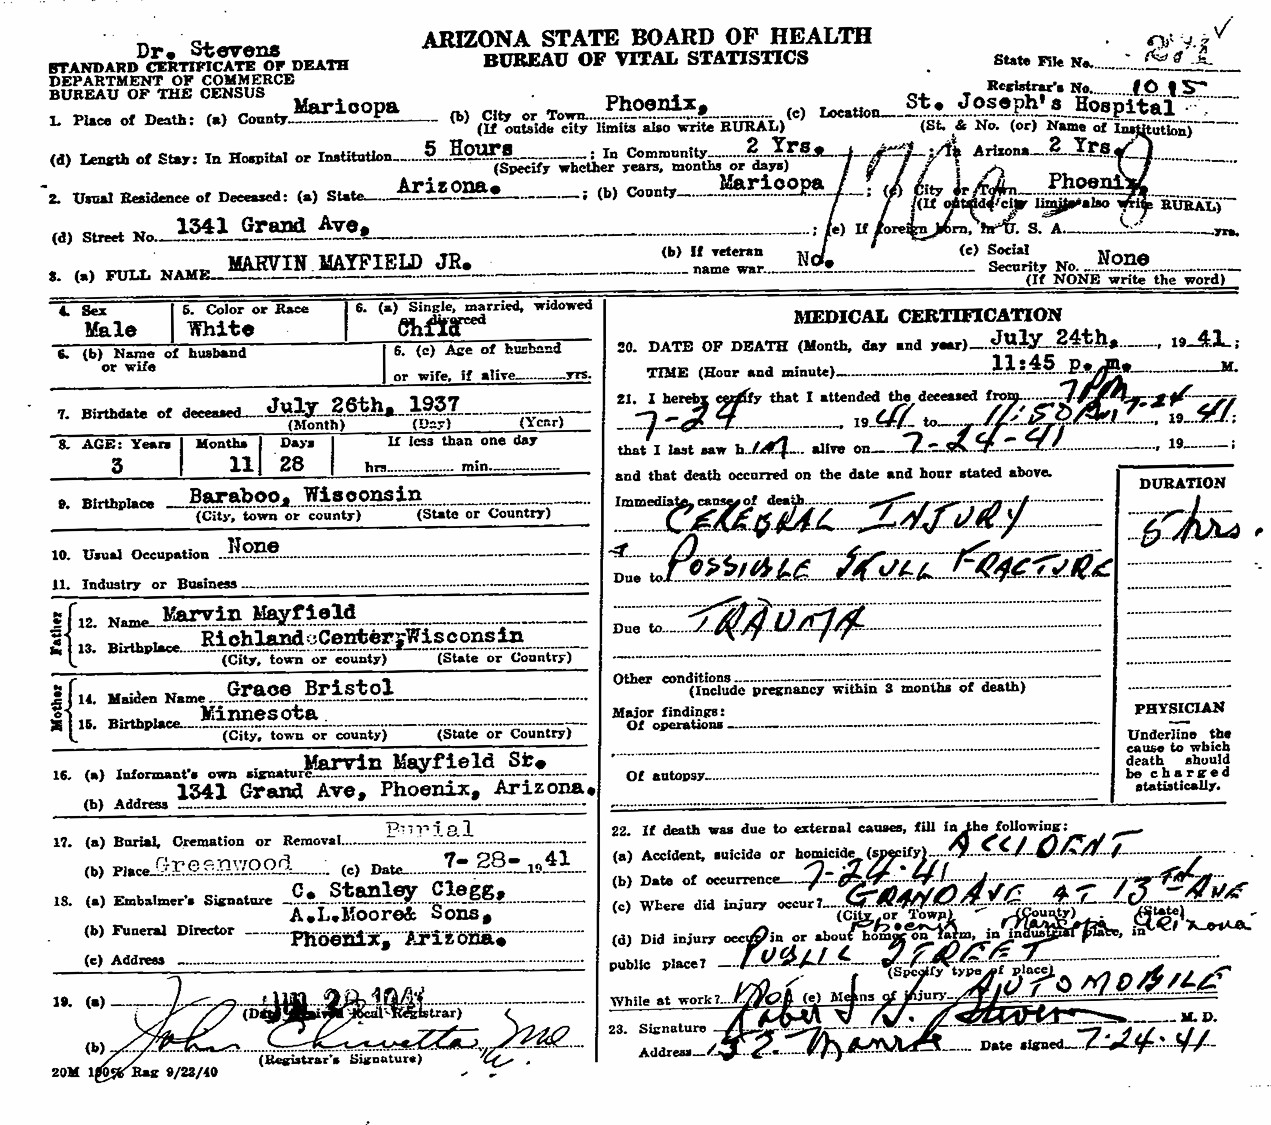 ARIZONA STATE BOARD OF HEALTH
BUREAU OF VITAL STATISTICS
Dr. Stevens
STANDARD CERTIFICATE OF DEATH
DEPARTMENT OF COMMERCE
BUREAU OF THE CENSUS
State File No.
Registrar's No. 1015
1. Place of Death: (a) County Maricopa (b) City or Town Phoenix, (c) Location St. Joseph's Hospital
(If outside city limits also write RURAL) (St. & No. (or) Name of Institution)
(d) Length of Stay: In Hospital or Institution 5 Hours ; In Community 2 Yrs. ; In Arizona 2 Yrs.
(Specify whether years, months or days)
2. Usual Residence of Deceased: (a) State Arizona. ; (b) County Maricopa ; (c) City or Town Phoenix,
(If outside city limits also write RURAL)
(d) Street No. 1341 Grand Ave, ; (e) If foreign born, in U. S. A. yrs.
3. (a) FULL NAME MARVIN MAYFIELD JR. (b) If veteran name war No. (c) Social Security No. None
(If NONE write the word)
4. Sex Male
5. Color or Race White
6. (a) Single, married, widowed divorced Child
6. (b) Name of husband or wife
6. (c) Age of husband or wife, if alive yrs.
7. Birthdate of deceased July 26th, 1937
(Month) (Day) (Year)
8. AGE: Years 3 Months 11 Days 28 If less than one day hrs. min.
9. Birthplace Baraboo, Wisconsin
(City, town or county) (State or Country)
10. Usual Occupation None
11. Industry or Business
Father
12. Name Marvin Mayfield
13. Birthplace Richland Center, Wisconsin
(City, town or county) (State or Country)
Mother
14. Maiden Name Grace Bristol
15. Birthplace Minnesota
(City, town or county) (State or Country)
16. (a) Informant's own signature Marvin Mayfield Sr.
(b) Address 1341 Grand Ave, Phoenix, Arizona.
17. (a) Burial, Cremation or Removal Burial
(b) Place Greenwood (c) Date 7-28- 1941
18. (a) Embalmer's Signature C. Stanley Clegg,
(b) Funeral Director A.L.Moore& Sons,
Phoenix, Arizona.
(c) Address
19. (a)
(Date received local Registrar)
(b)
(Registrar's Signature)
20M 100% Rag 9/23/40
MEDICAL CERTIFICATION
20. DATE OF DEATH (Month, day and year) July 24th, , 19 41;
TIME (Hour and minute) 11:45 p. m. M.
21. I hereby certify that I attended the deceased from 7 PM
7-24 , 19 41 to 11:50 P.M, 7-24 , 19 41;
that I last saw him alive on 7-24-41 , 19 ;
and that death occurred on the date and hour stated above.
DURATION
Immediate cause of death
CEREBRAL INJURY 5 hrs.
Due to POSSIBLE SKULL FRACTURE
Due to TRAUMA
Other conditions
(Include pregnancy within 3 months of death)
Major findings:
Of operations
Of autopsy
PHYSICIAN
Underline the
cause to which
death should
be charged
statistically.
22. If death was due to external causes, fill in the following:
(a) Accident, suicide or homicide (specify) ACCIDENT
(b) Date of occurrence 7-24-41
(c) Where did injury occur? GRAND AVE AT 13TH AVE
(City or Town) (County) (State)
Phoenix Maricopa Arizona
(d) Did injury occur in or about home, on farm, in industrial place, in
public place? PUBLIC STREET
(Specify type of place)
While at work? (e) Means of injury AUTOMOBILE
23. Signature Robert S. Stevens M. D.
Address Date signed 7-24-41